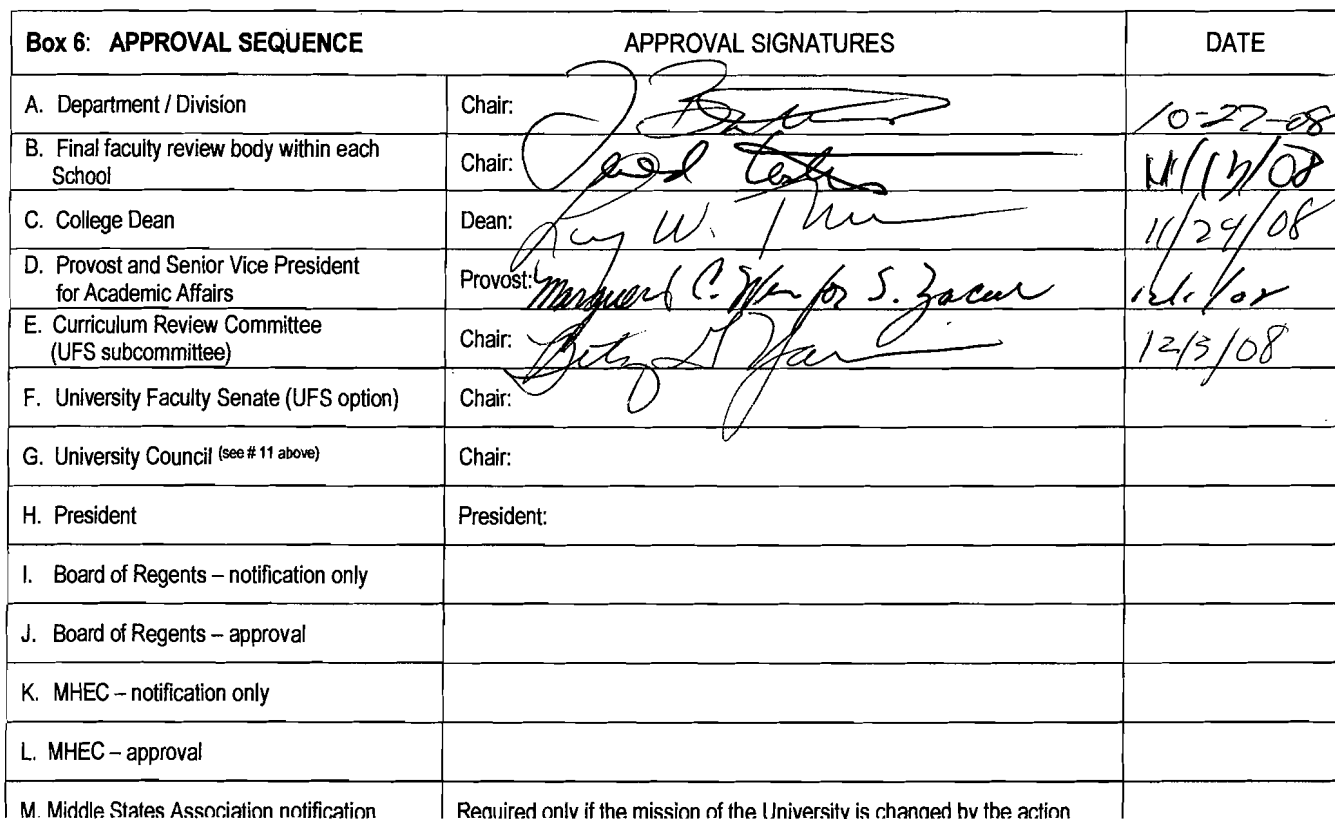 Box 6: APPROVAL SEQUENCE APPROVAL SIGNATURES DATE
A. Department / Division Chair: 10-27-08
B. Final faculty review body within each
School Chair:
C. College Dean Dean: Ray W. 11/24/08
D. Provost and Senior Vice President
for Academic Affairs Provost: C. for S. Zacur
E. Curriculum Review Committee
(UFS subcommittee) Chair: Betsy G 12/3/08
F. University Faculty Senate (UFS option) Chair:
G. University Council (see # 11 above) Chair:
H. President President:
I. Board of Regents – notification only
J. Board of Regents – approval
K. MHEC – notification only
L. MHEC – approval
M. Middle States Association notification Required only if the mission of the University is changed by the action